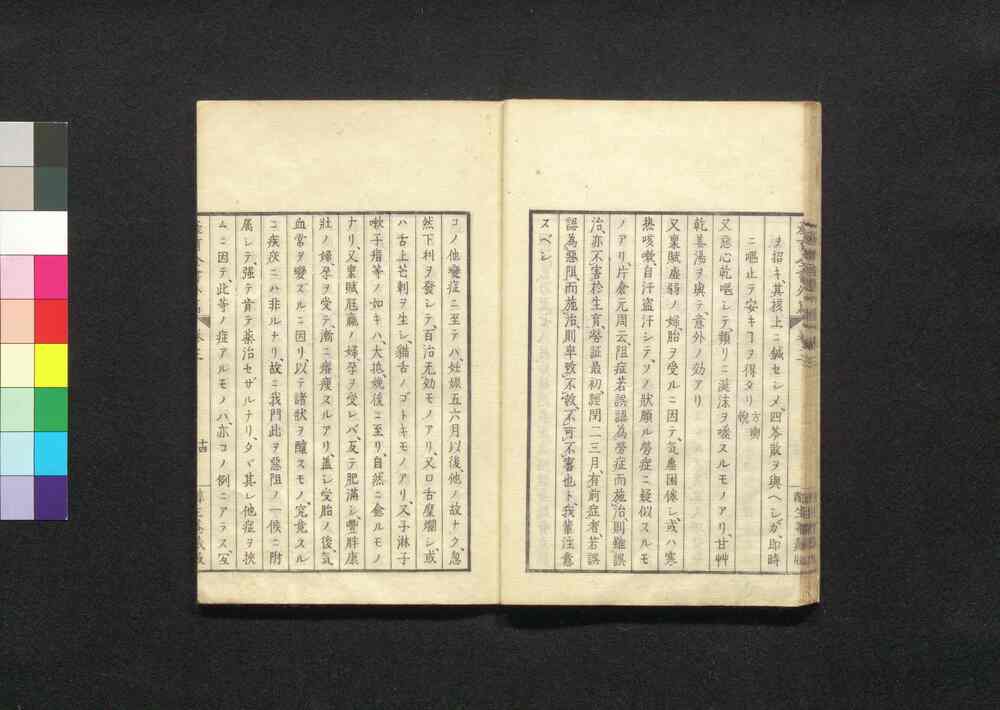 ヲ招キ、其核上ニ鍼セシメ、四苓散ヲ與ヘシガ、即時
ニ嘔止テ安キヿヲ得タリ 方輿輗
又惡心乾嘔シテ、頻リニ涎沫ヲ唾スルモノアリ、甘艸
乾姜湯ヲ與テ、意外ノ効アリ
又稟賦虚弱ノ婦、胎ヲ受ルニ因テ、気虚困倦シ、或ハ寒
熱咳嗽、自汗盗汗シテ、ソノ状頗ル勞症ニ疑似スルモ
ノアリ、片倉元周云、阻症若誤認為勞症而施治、則雖誤
治、亦不害於生育、勞証最初經閉二三月、有前症者、若誤
認為惡阻、而施治、則卑致不救、不可不審也ト、我輩注意
スベシ
コノ他變症ニ至テハ、妊娠五六月以後、他ノ故ナク、忽
然下利ヲ發シテ、百治无効モノアリ、又口舌糜爛シ、或
ハ舌上芒刺ヲ生シ、猫舌ノゴトキモノアリ、又子淋子
嗽子瘖等ノ如キハ、大抵娩後ニ至リ、自然ニ愈ルモノ
ナリ、又稟賦尫羸ノ婦、孕ヲ受レバ、反テ肥滿シ、豐胖康
壯ノ婦、孕ヲ受テ、漸ニ瘠痩スルアリ、盖シ受胎ノ後、気
血常ヲ變ズルニ因リ、以テ諸状ヲ釀スモノ、究竟スル
ニ疾疢ニハ非ルナリ、故ニ我門此ヲ惡阻ノ一候ニ附
属シテ、强テ肯テ藥治セザルナリ、タヾ其レ他症ヲ挾
ムニ因テ、此等ノ症アルモノハ、亦コノ例ニアラス、宜
十四